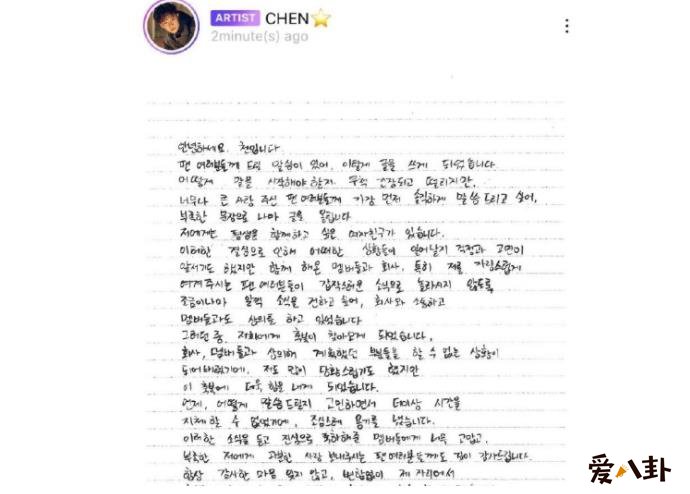 ARTIST CHEN⭐
2minute(s) ago
안녕하세요. 첸입니다.
팬 여러분들께 드릴 말씀이 있어, 이렇게 글을 쓰게 되었습니다.
어떻게 말을 시작해야 할지 무척 긴장되고 떨리지만,
너무나 큰 사랑 주신 팬 여러분들께 가장 먼저 솔직하게 말씀드리고 싶어,
부족한 문장으로 나마 글을 올립니다
저에게는 평생을 함께하고 싶은 여자친구가 있습니다.
이러한 결심으로 인해 어떠한 상황들이 일어날지 걱정과 고민이
앞서기도 했지만 함께 해온 멤버들과 회사, 특히 저를 자랑스럽게
여겨주시는 팬 여러분들이 갑작스러운 소식으로 놀라시지 않도록
조금이나마 일찍 소식을 전하고 싶어, 회사와 소통하고
멤버들과도 상의를 하고 있었습니다
그러던 중, 저희에게 축복이 찾아오게 되었습니다.
회사, 멤버들과 상의해 계획했던 부분들을 할 수 없는 상황이
되어버렸기에, 저도 많이 당황스럽기도 했지만
이 축복에 더욱 힘을 내게 되었습니다.
언제, 어떻게 말씀드릴지 고민하면서 더이상 시간을
지체할 수 없었기에, 조심스레 용기를 냈습니다.
이러한 소식을 듣고 진심으로 축하해준 멤버들에게 너무 고맙고,
부족한 저에게 과분한 사랑 보내주시는 팬 여러분들께도 깊이 감사드립니다.
항상 감사한 마음 잊지 않고, 변함없이 제 자리에서
爱八卦